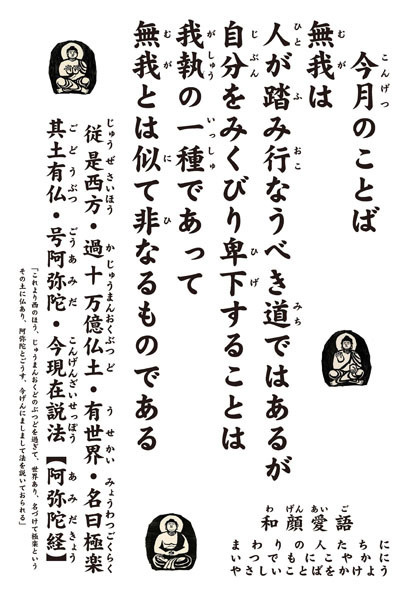 今月のことば
無我は
人が踏み行なうべき道ではあるが
自分をみくびり卑下することは
我執の一種であって
無我とは似て非なるものである
従是西方・過十万億仏土・有世界・名曰極楽
其土有仏・号阿弥陀・今現在説法【阿弥陀経】
「これより西のほう、じゅうまんおくどのぶつどを過ぎて、世界あり、名づけて極楽という
その土に仏あり、阿弥陀とごうす、今げんにましまして法を説いておられる」
和顔愛語
まわりの人たちに
いつでもにこやかに
やさしいことばをかけよう